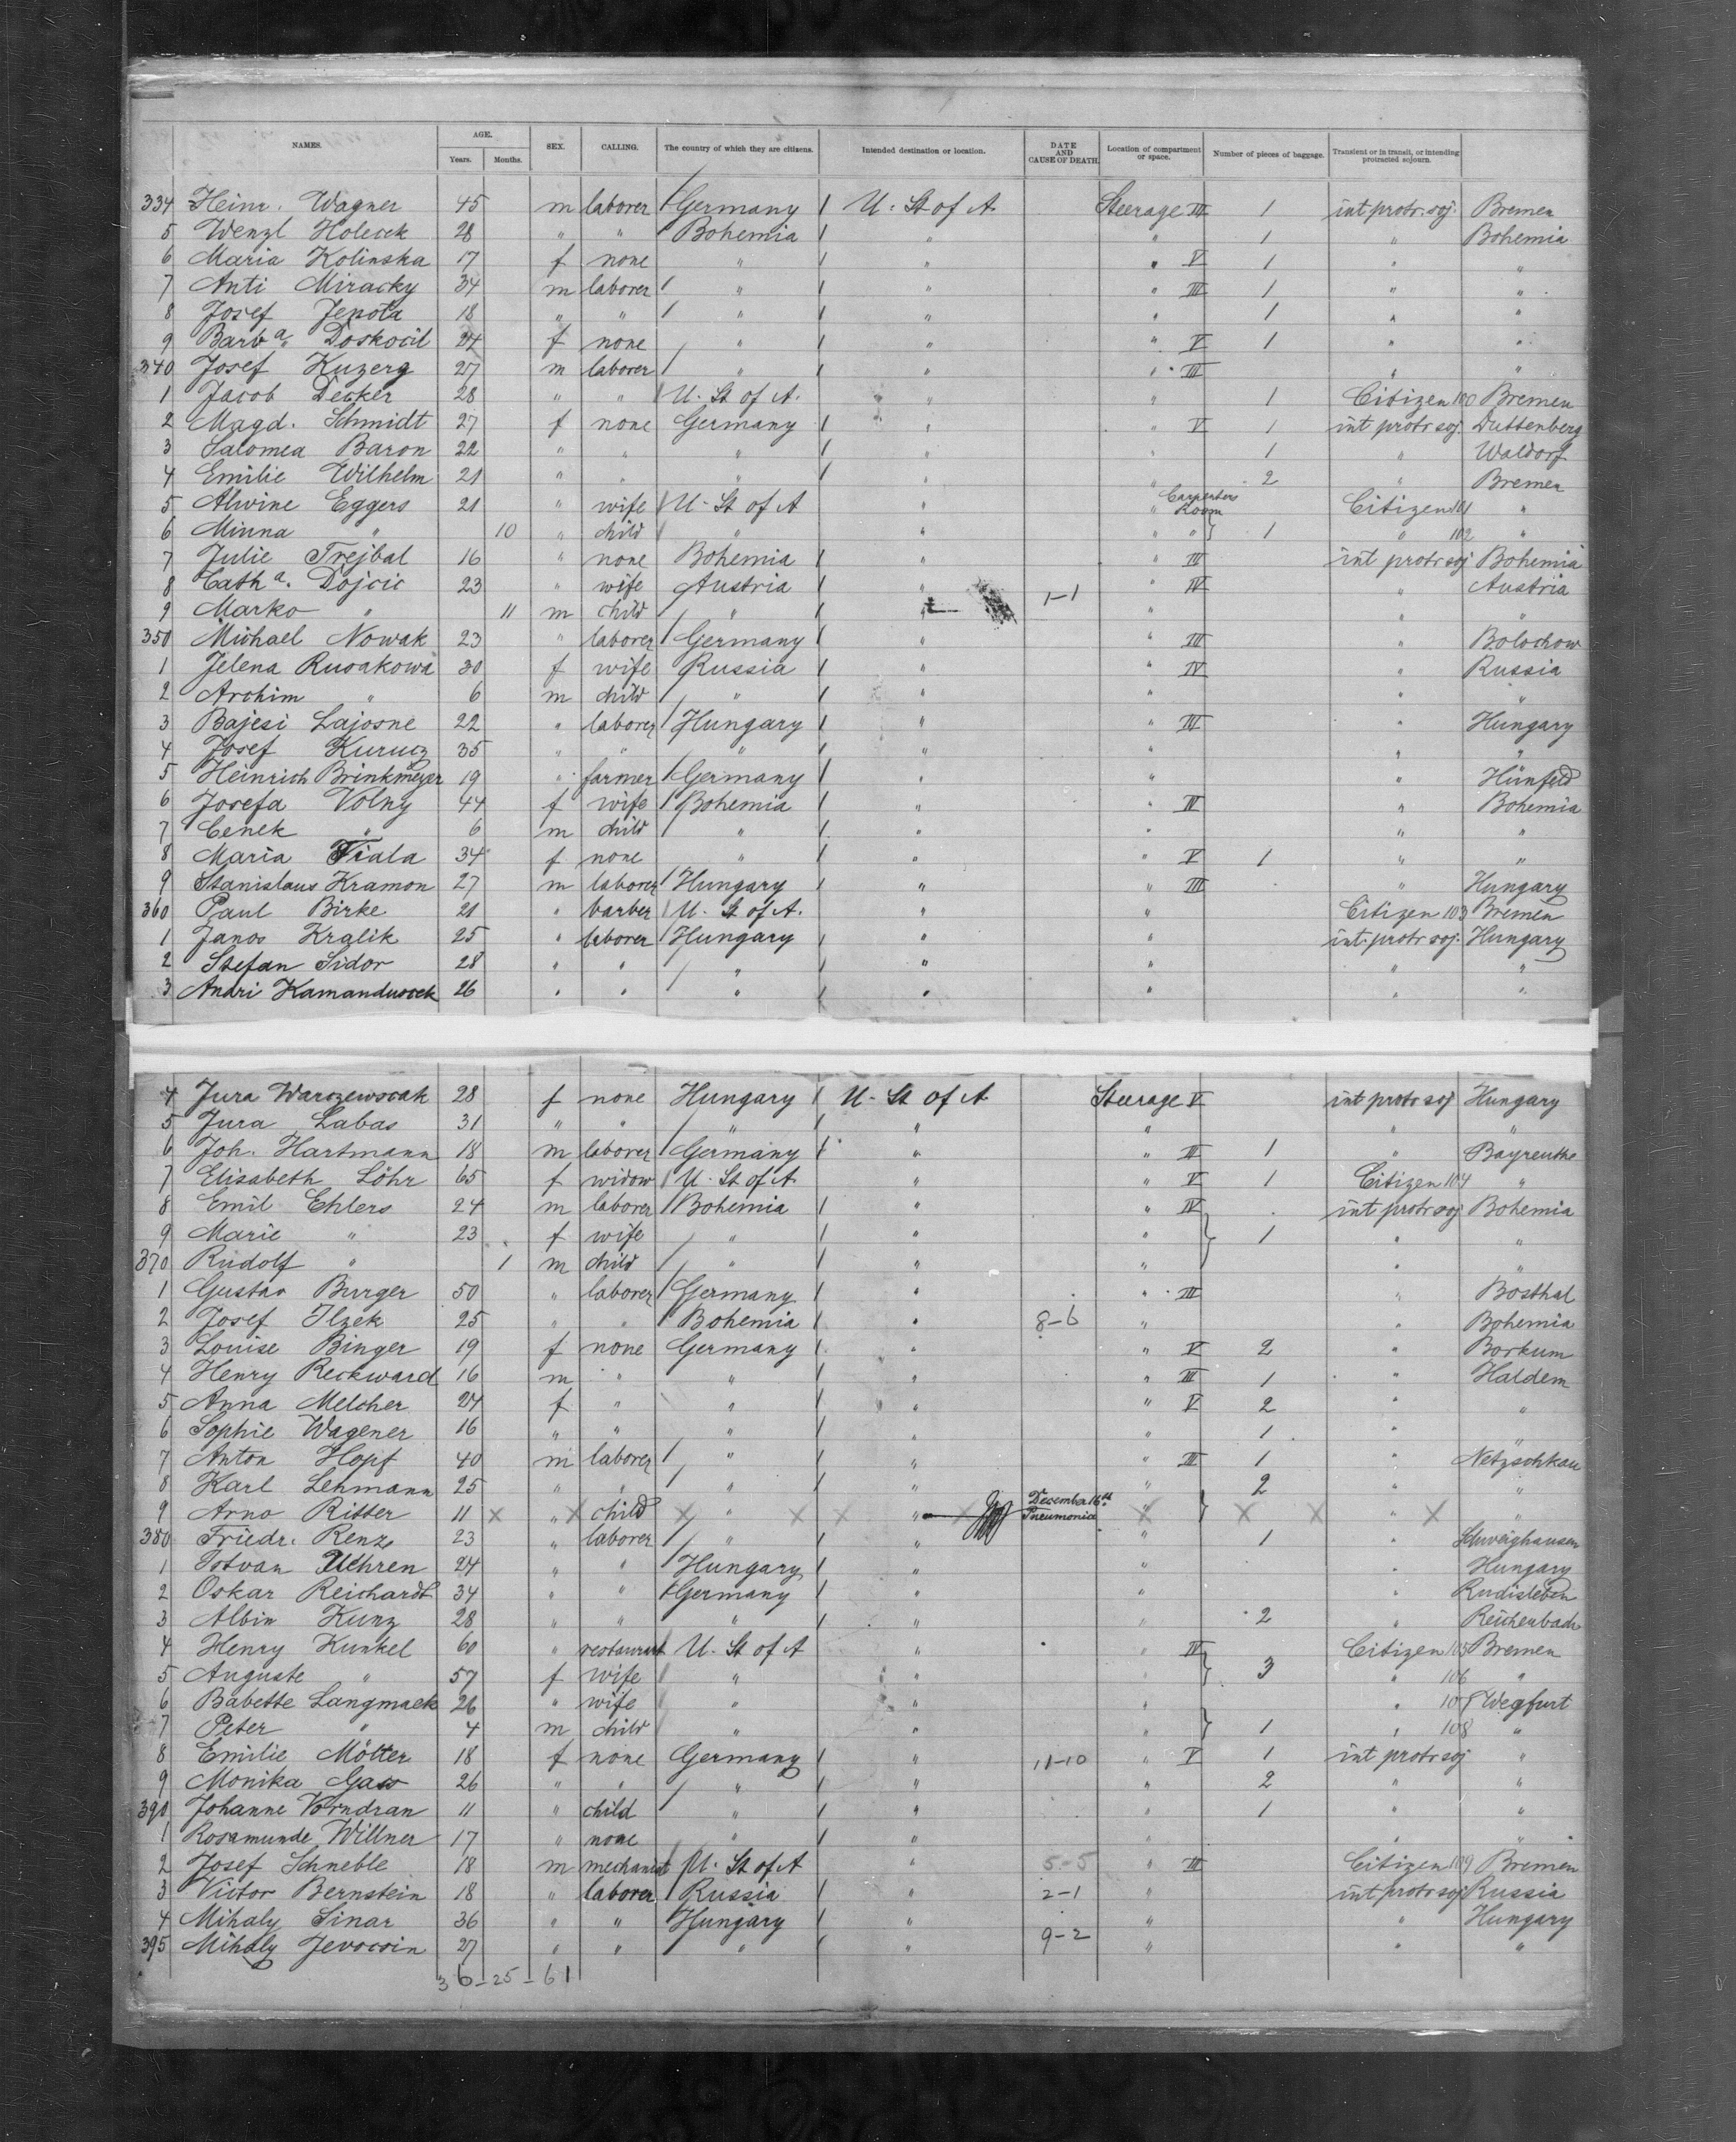 NAMES. AGE. Years. Months. SEX. CALLING. The country of which they are citizens. Intended destination or location. DATE AND CAUSE OF DEATH. Location of compartment or space. Number of pieces of baggage. Transient or in transit, or intending protracted sojourn.
334 Heinr. Wagner 45 m laborer Germany U. St of A. Steerage III 1 int protr. soj. Bremen
5 Wenzl Holecek 28 " " Bohemia " " 1 " Bohemia
6 Maria Kolinska 17 f none " " " V 1 " "
7 Anti Miracky 34 m laborer " " " III 1 " "
8 Josef Jepota 18 " " " " " 1 " "
9 Barba. Doskocil 24 f none " " " V 1 " "
340 Josef Kuzerg 27 m laborer " " " III " "
1 Jacob Decker 28 " " U. St of A. " " 1 Citizen 100 Bremen
2 Magd. Schmidt 27 f none Germany " " V 1 int protr soj. Duttenberg
3 Salomea Baron 22 " " " " " 1 " Waldorf
4 Emilie Wilhelm 21 " " " " " 2 " Bremen
5 Alwine Eggers 21 " wife U. St of A " " Carpenters Room Citizen 101 "
6 Minna " 10 " child " " " " 1 " 102 "
7 Julie Trejbal 16 " none Bohemia " " III int protr soj Bohemia
8 Catha. Dojcic 23 " wife Austria " 1-1 " IV " Austria
9 Marko " 11 m child " " " " "
350 Michael Nowak 23 " laborer Germany " " III " Bolochow
1 Jelena Rusakowa 30 f wife Russia " " IV " Russia
2 Archim " 6 m child " " " " "
3 Bajesi Lajosne 22 " laborer Hungary " " III " Hungary
4 Josef Kurucz 35 " " " " " " "
5 Heinrich Brinkmeyer 19 " farmer Germany " " " Hünfeld
6 Josefa Volny 44 f wife Bohemia " " IV " Bohemia
7 Cenek " 6 m child " " " " "
8 Maria Fiala 34 f none " " " V 1 " "
9 Stanislaus Kramon 27 m laborer Hungary " " III " Hungary
360 Paul Birke 21 " barber U. St of A. " " Citizen 103 Bremen
1 Janos Kralik 25 " laborer Hungary " " int. protr soj. Hungary
2 Stefan Sidor 28 " " " " " " "
3 Andri Kamanduscek 26 " " " " " " "
4 Jura Warczewscak 28 f none Hungary U. St of A Steerage V int protr soj Hungary
5 Jura Labas 31 " " " " " " "
6 Joh. Hartmann 18 m laborer Germany " " III 1 " Bayreuthe
7 Elisabeth Löhr 65 f widow U. St of A. " " V 1 Citizen 104 "
8 Emil Ehlers 24 m laborer Bohemia " " IV int protr soj Bohemia
9 Marie " 23 f wife " " " 1 " "
370 Rudolf " 1 m child " " " " "
1 Gustav Burger 50 " laborer Germany " " III " Bosthal
2 Josef Ilzek 25 " " Bohemia " 8-6 " " Bohemia
3 Louise Binger 19 f none Germany " " V 2 " Borkum
4 Henry Reckward 16 m " " " " III 1 " Haldem
5 Anna Melcher 24 f " " " " V 2 " "
6 Sophie Wagener 16 " " " " " 1 " "
7 Anton Hopf 40 m laborer " " " III 1 " Netzschkau
8 Karl Lehmann 25 " " " " " 2 " "
9 Arno Ritter 11 " child " " December 16th Pneumonia " " "
380 Friedr. Renz 23 " laborer " " " 1 " Schweighausen
1 Istvan Uehren 24 " " Hungary " " " Hungary
2 Oskar Reichardt 34 " " Germany " " " Rudisleben
3 Albin Kunz 28 " " " " " 2 " Reichenbach
4 Henry Kunkel 60 " restaurant U. St of A " " IV Citizen 105 Bremen
5 Auguste " 57 f wife " " " 3 " 106 "
6 Babette Langmack 26 " wife " " " " 107 Wegfurt
7 Peter " 4 m child " " " 1 " 108 "
8 Emilie Mötter 18 f none Germany " 11-10 " V 1 int protr soj "
9 Monika Gass 26 " " " " " 2 " "
390 Johanne Vorndran 11 " child " " " 1 " "
1 Rosamunde Willner 17 " none " " " " "
2 Josef Schneble 18 m mechanist U. St of A " 5-5 " III Citizen 109 Bremen
3 Victor Bernstein 18 " laborer Russia " 2-1 " int protr soj Russia
4 Mihaly Sinar 36 " " Hungary " " " Hungary
395 Mihaly Jevocsin 27 " " " " 9-2 " " "
36-25-61